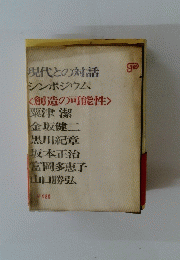 現代との対話
シンポジウム
<創造の可能性>
粟津潔
金坂健二
黒川紀章
坂本正治
富岡多恵子
山口勝弘